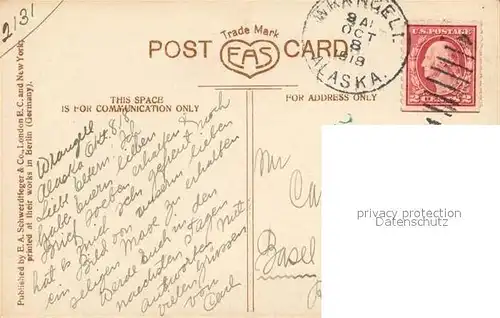 2131
Trade Mark
POST CARD
EAS
WRANGELL
9 A
OCT
8
ALASKA.
U.S. POSTAGE
2 CENTS 2
THIS SPACE
IS FOR COMMUNICATION ONLY
FOR ADDRESS ONLY
Published by E. A. Schwerdtfeger & Co., London E. C. and New York,
printed at their works in Berlin (Germany).
Wrangell
Alaska Okt. 8/8
Liebe Eltern. Ich
habe euern lieben
Brief soeben erhalten & noch
hat es mich sehr gefreut noch
ein Bild von unserm lieben
seligen Max zu erhalten
Werde Euch in den
naechsten Tagen
antworten. Mit
vielen Grüssen
von
Carl
Mr
Ca
Basel
privacy protection
Wahrung der Privatsphäre